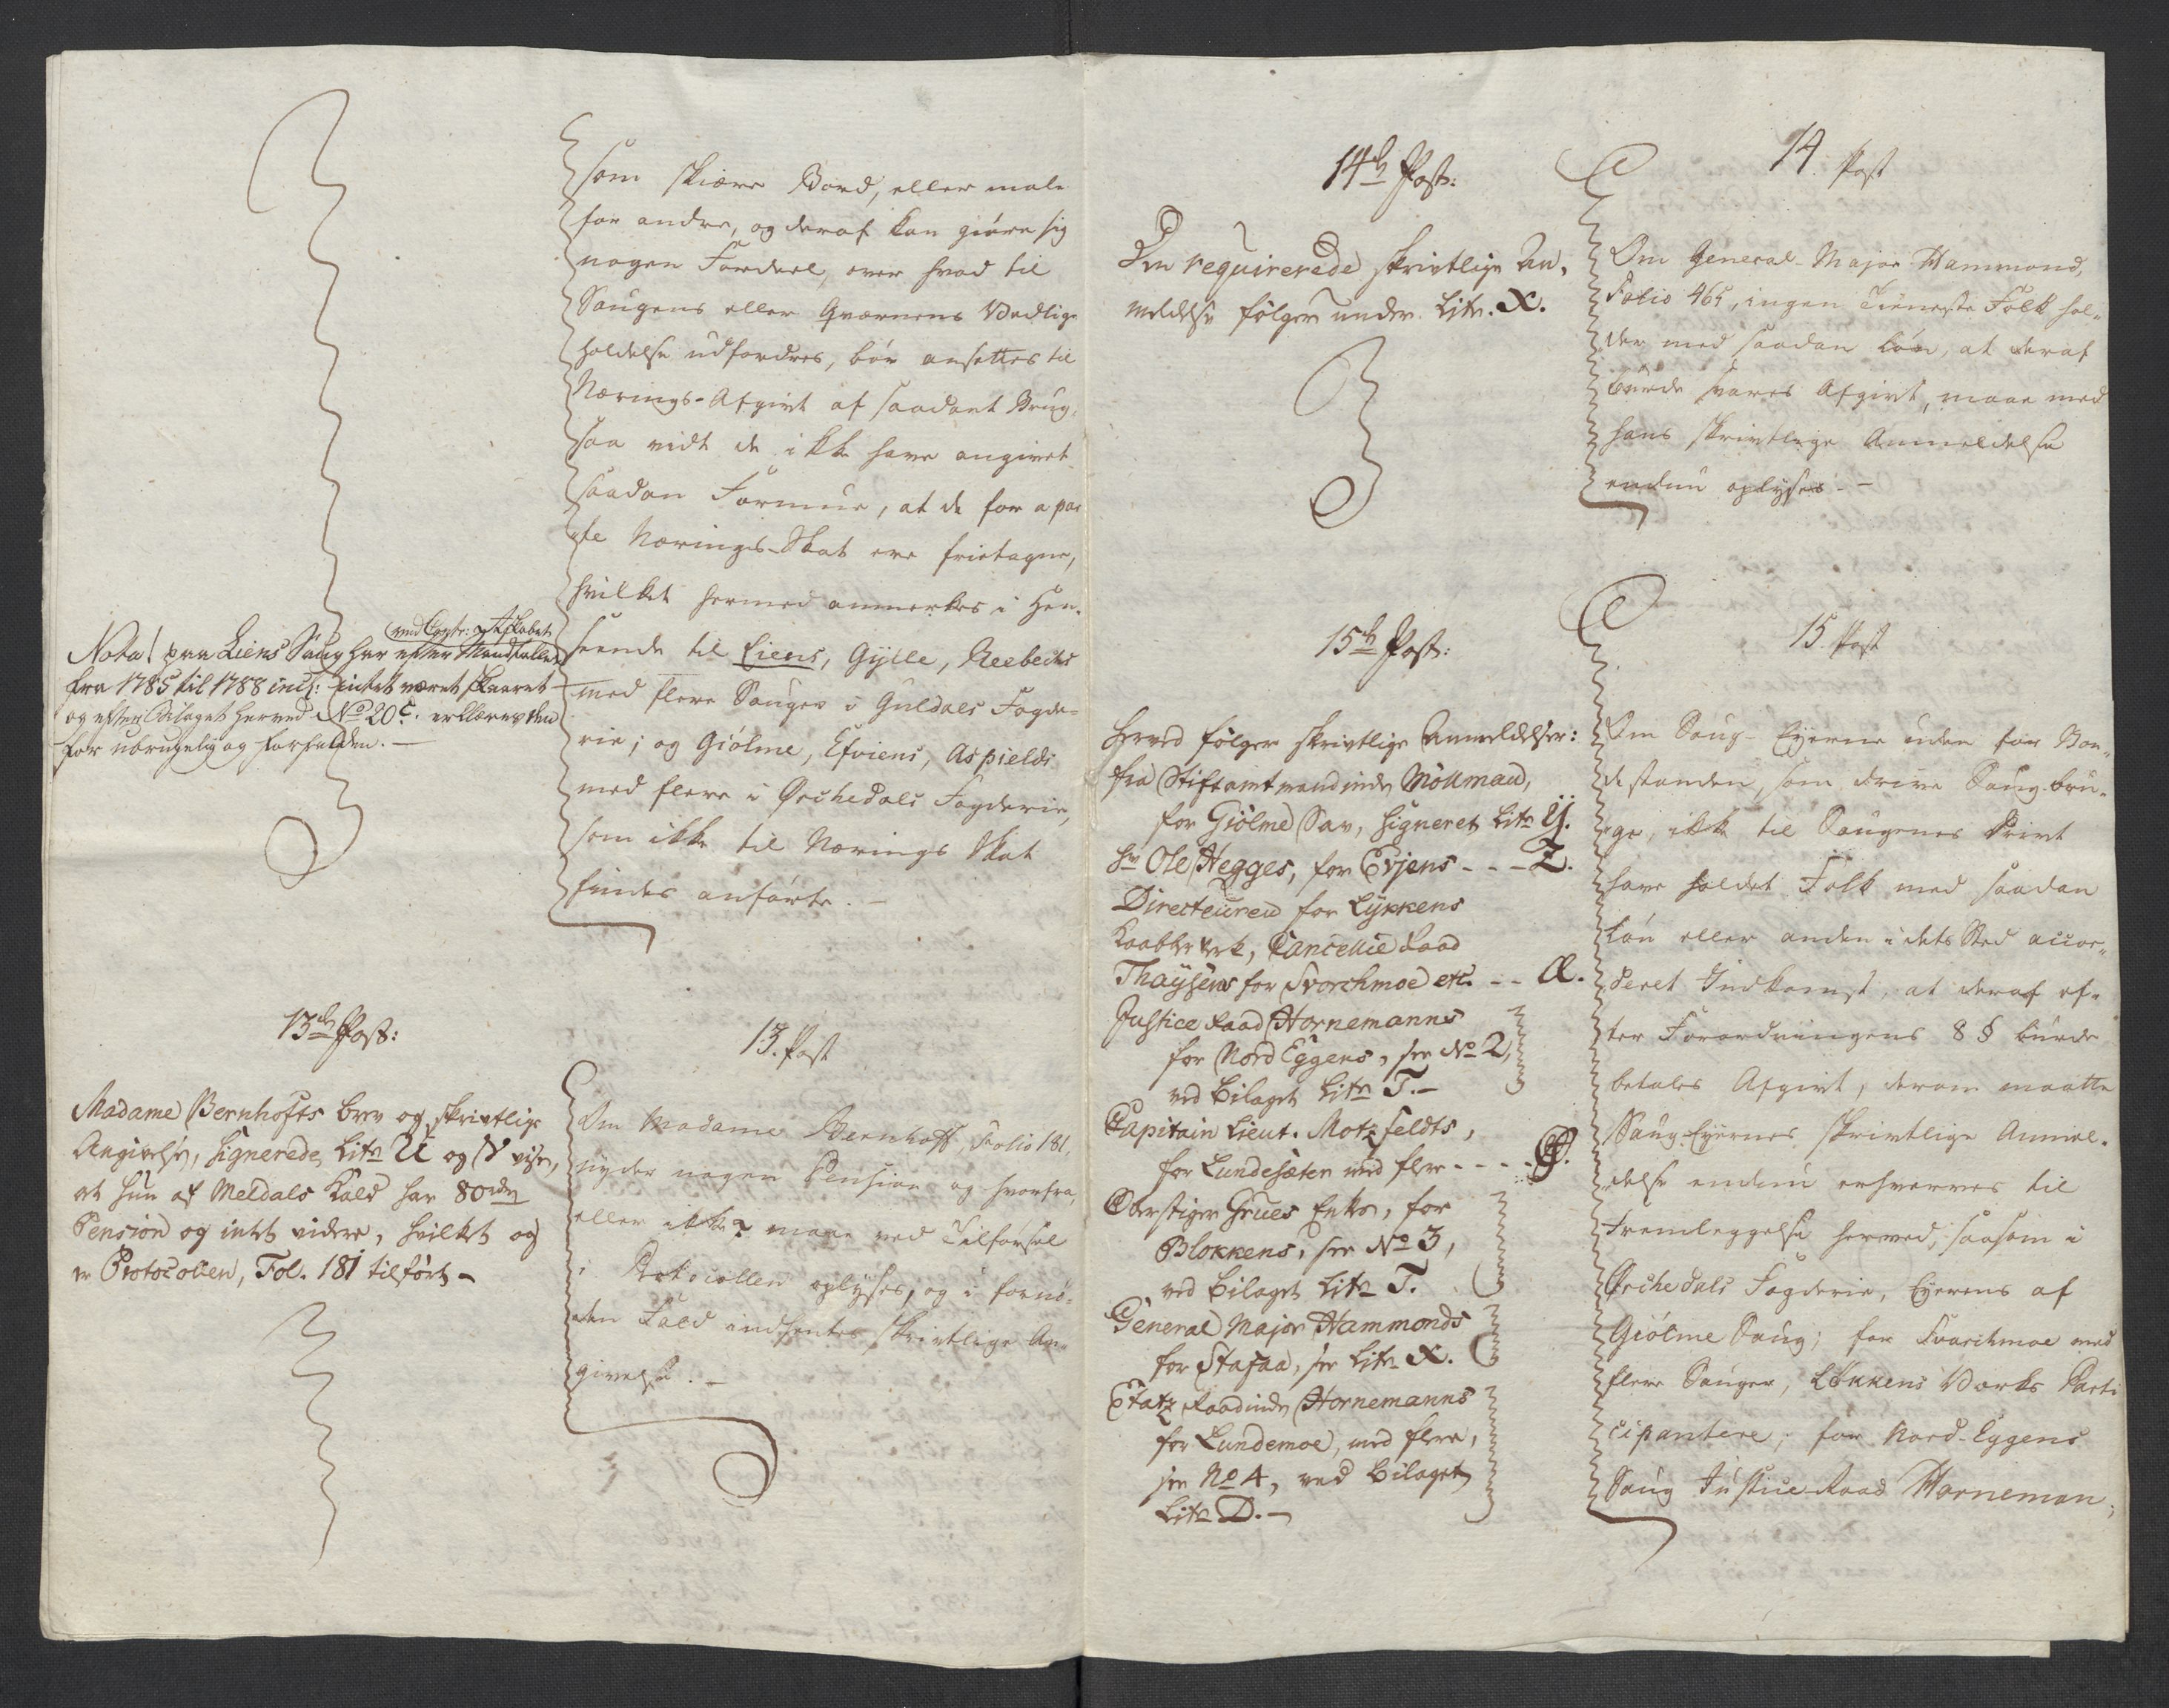 som skiære Bord, eller male
for andre, og deraf kan giöre sig
nogen Fordeel, over hvad til
Saugens eller Qværnens Vedlige
holdelse udfordres, bör ansettes til
Nærings-Afgivt af saadant Brug,
saa vidt de ikke have angivet
saadan Formue, at de for apar
te Nærings-Skat ere frietagne,
hvilket hermed anmerkes i Hen-
seende til Liens, Gylle, Reebechs
med flere Sauger i Guldals Fogde-
rie; og Giölme, Efviens, Aspields
med flere i Örchedals Fogderie,
som ikke til Nærings Skat
findes anförte. -
Nota! paa Liens Saug har efter Mandtallet
ved Contr: Skabet
fra 1785 til 1788 incl: intet været skaaret
og efter Bilaget herved No 20 C. erklæres den
for ubrugelig og forfalden. -
13de Post:
Madame Bernhofts brev og skrivtlige
Angivelse, signerede Litr U og V viser,
at hun af Meldals Kald har 80 rdr
Pension og intet videre, hvilket og
er Protocollen, Fol. 181 tilfört -
13. Post
Om Madame Bernhoft, Folio 181,
nyder nogen Pension og hvorfra,
eller ikke? maae ved Tilförsel
i Protocollen oplyses, og i fornö-
den Fald indhentes skrivtlige An-
givelse. -
14de Post:
Den requirerede skrivtlige An-
meldelse fölger under Litr. X.
15de Post:
Herved fölger skrivtlige Anmeldelser:
fra Stiftamtmandinde Möllman,
for Giölme Sav, signeret Litr Y.
Hr Ole Hegges, for Evjens - - - Z.
Directeuren for Lykkens
Kaabberverk, Cancellie Raad
Thaysens for Svorchmoe etc. - - Æ.
Justice Raad Hornemanns
for Nord Eggens, see No 2,
ved Bilaget Litr T. -
Capitain Lieut. Motzfeldts,
for Lundesæter med flere - - - - Ø.
Oberstiger Grues Enke, for
Blokkens, see No 3,
ved Bilaget Litr T.
General Major Hammonds
for Stafaa, see Litr X.
Etatz Raadinde Hornemanns
for Lundemoe, med flere,
see No 4, ved Bilaget
Litr D. -
14. Post
Om General-Major Hammond,
Folio 465, ingen Tieneste Folk hol-
der med saadan Lön, at deraf
burde svares Afgivt, maae med
hans skrivtlige Anmeldelse
endnu oplyses. -
15. Post
Om Saug-Eyerne uden for Bon-
destanden, som drive Saug-bru-
ge, ikke til Saugenes Drivt
have holdet Folk med saadan
Lön eller anden i dets Sted accor-
deret Indkomst, at deraf ef-
ter Forordningens 8 § burde
betales Afgivt, derom maatte
Saug-Eyernes skrivtlige Anmel-
delse endnu erhverves til
Fremleggelse herved, saasom i
Örchedals Fogderie, Eyerens af
Giölme Saug; for Svorchmoe med
flere Sauger, Lökkens Værks Parti
cipantere; for Nord-Eggens
Saug Justice-Raad Horneman;